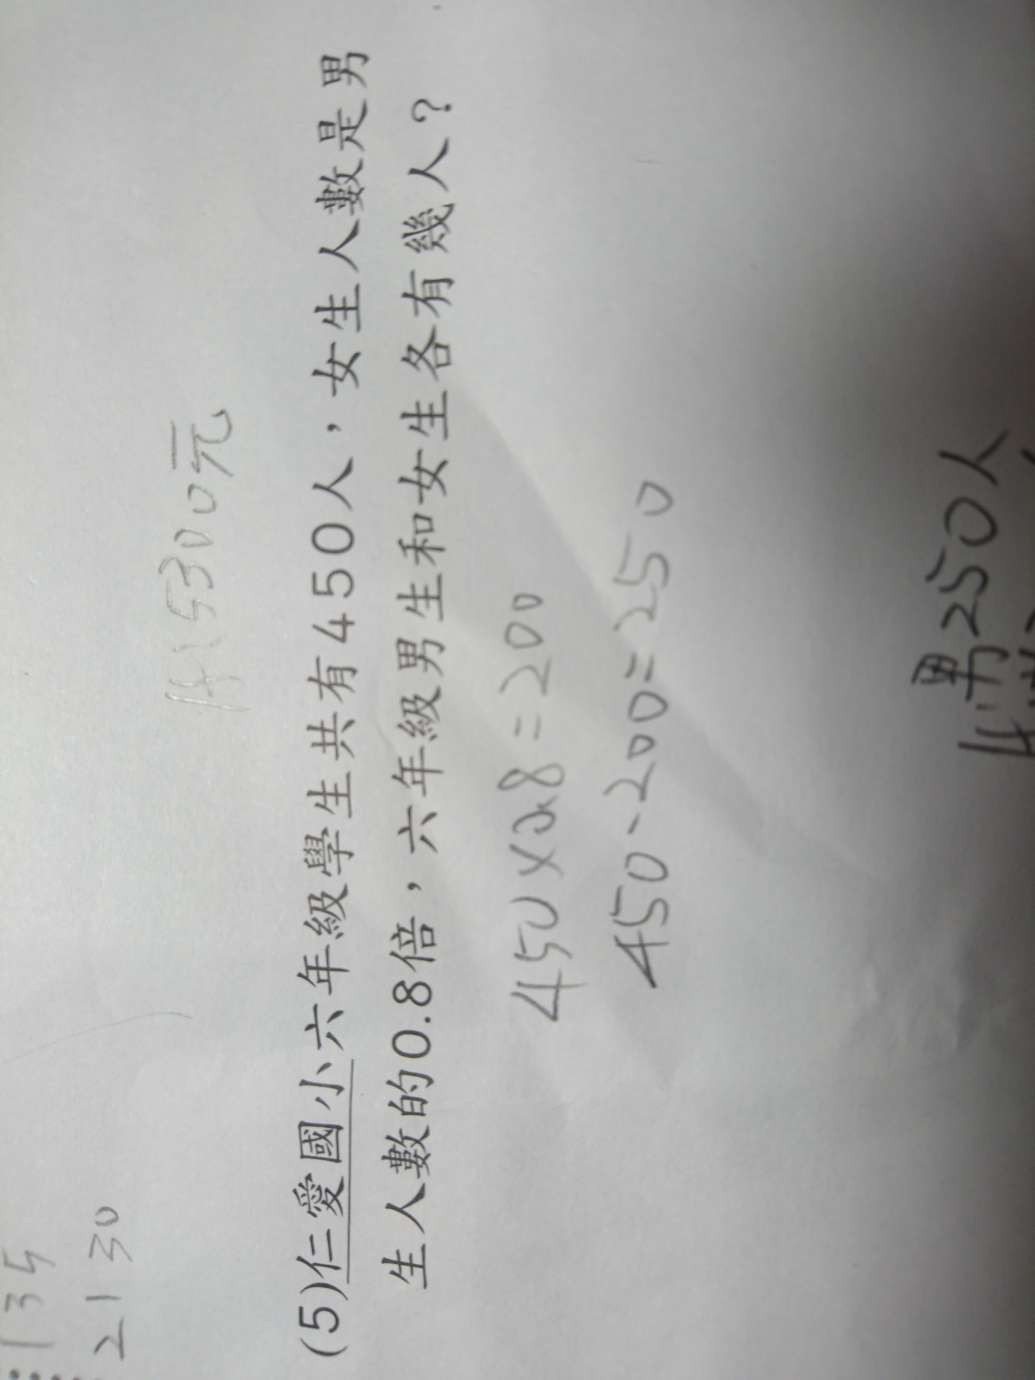 135
2130
A:5300元
(5)仁愛國小六年級學生共有450人，女生人數是男
生人數的0.8倍，六年級男生和女生各有幾人？
450×0.8=200
450-200=250
A:男250人